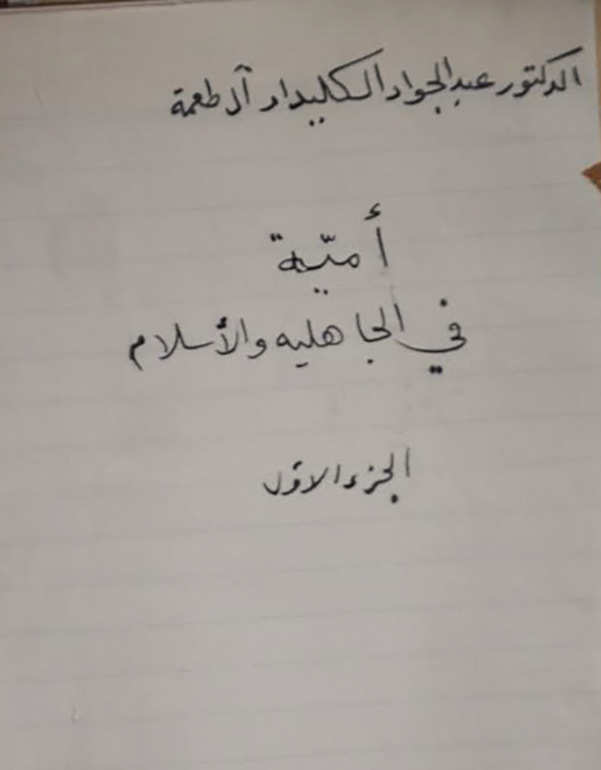 الدكتور عبد الجواد الكليدار آل طعمة
أميّة
في الجاهليه والأسلام
الجزء الاوّل